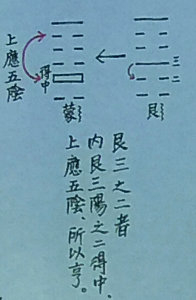 上應五陰
得中
蒙
三
二
艮
艮三之二者
內艮三陽之二得中、
上應五陰、所以亨。